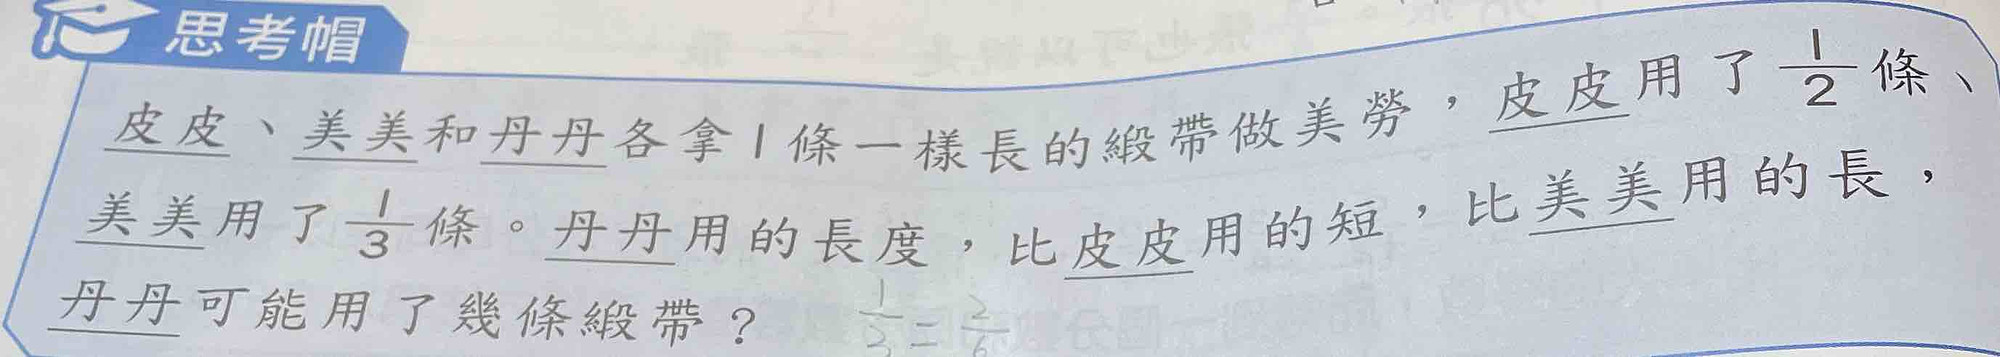 思考帽
皮皮、美美和丹丹各拿1條一樣長的緞帶做美勞,皮皮用了1/2條、
美美用了1/3條。丹丹用的長度,比皮皮用的短,比美美用的長,
丹丹可能用了幾條緞帶?
1/3=2/6